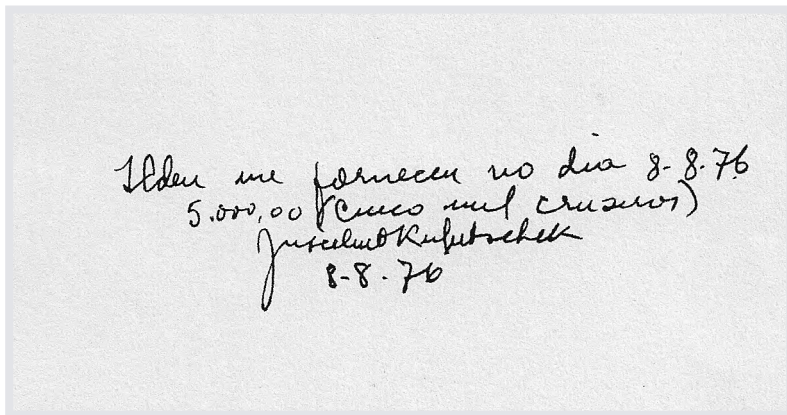 Ildeu me forneceu no dia 8-8-76
5.000,00 (Cinco mil cruzeiros)
Juscelino Kubitschek
8-8-76